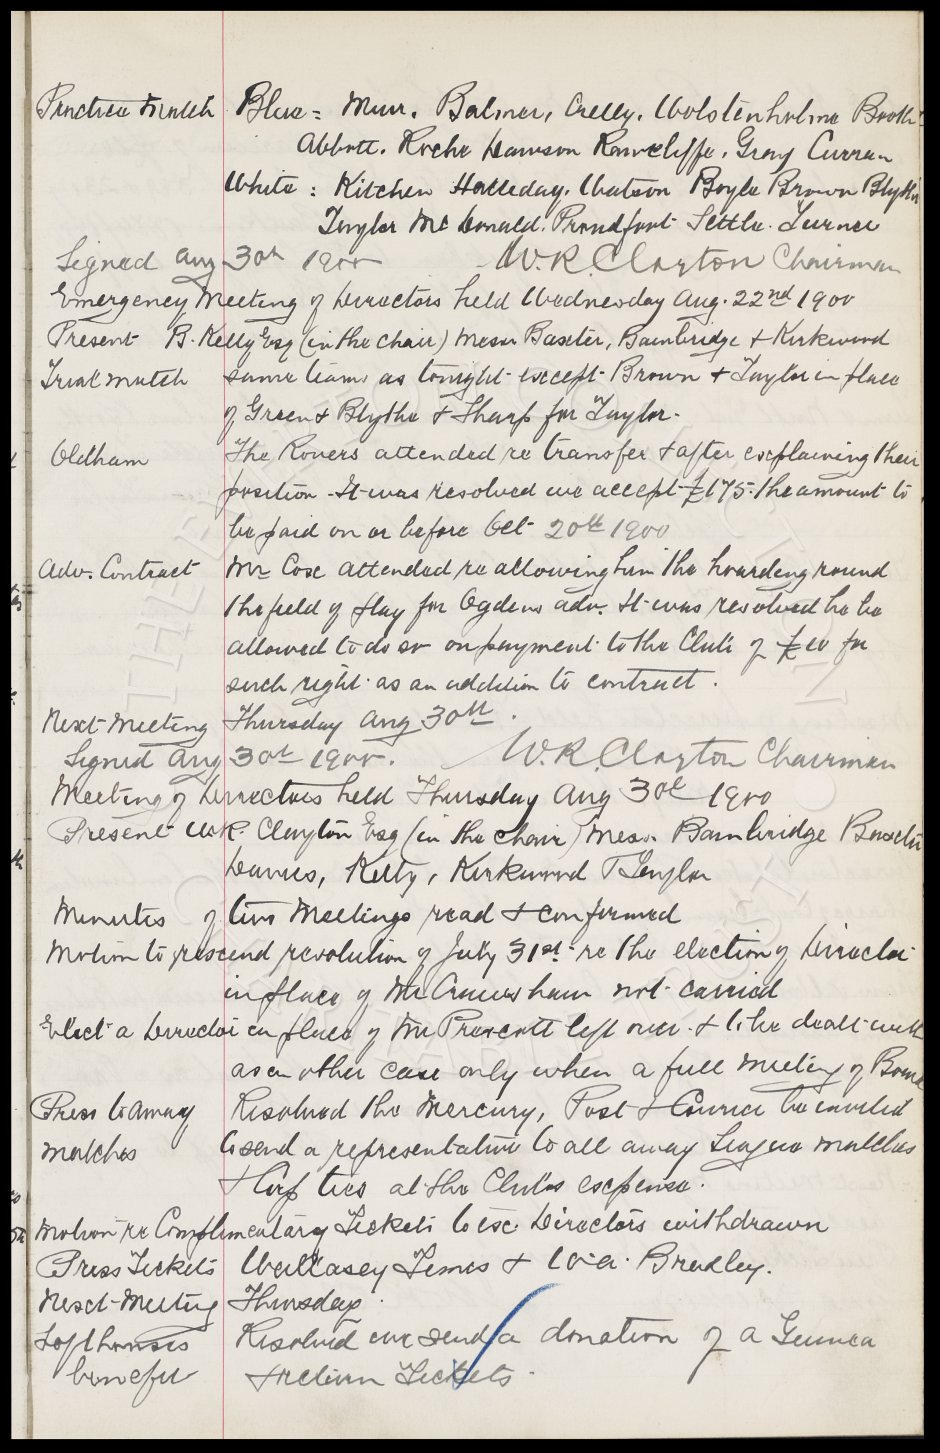 Practice Match Blue = Muir. Balmer, Crelly. Wolstenholme Booth
Abbott. Roche Dawson Rawcliffe. Gray Curran
White : Kitchen Halleday. Watson Boyle Brown Blythe
Taylor McDonald. Proudfoot Settle. Turner
Signed Aug 30th 1900 W.R. Clayton Chairman
Emergency Meeting of Directors held Wednesday Aug. 22nd 1900
Present B. Kelly Esq (in the chair) Messrs Baxter, Bainbridge & Kirkwood
Trial match same teams as tonight except Brown & Taylor in place
of Green & Blythe & Sharp for Taylor.
Oldham The Rovers attended re transfer & after explaining their
position - It was resolved we accept £175. the amount to
be paid on or before Oct 20th 1900
Adv. Contract Mr Cox attended re allowing him the hoarding round
the field of play for Ogdens adv. It was resolved he be
allowed to do so on payment to the Club of for
such right as an addition to contract.
Next Meeting Thursday Aug 30th.
Signed Aug 30th 1900. W.R. Clayton Chairman
Meeting of Directors held Thursday Aug 30th 1900
Present W.R. Clayton Esq (in the chair) Messrs. Bainbridge Baxter
Davies, Kelly, Kirkwood Taylor
Minutes of two Meetings read & confirmed
Motion to rescind resolution of July 31st re the election of Director
in place of Mr Crawsham not carried
Elect a Director in place of Mr Prescott left over & to be dealt with
as in other case only when a full meeting of Board
Press to away Resolved the Mercury, Post & Courier be invited
matches to send a representative to all away League matches
& Cup ties at the Clubs expense.
Motion re Complimentary Tickets to exc. Directors withdrawn
Press Tickets Wallasey Times & Bradley.
Next Meeting Thursday.
Lofthouses Resolved we send a donation of a Guinea
benefit & return Tickets.